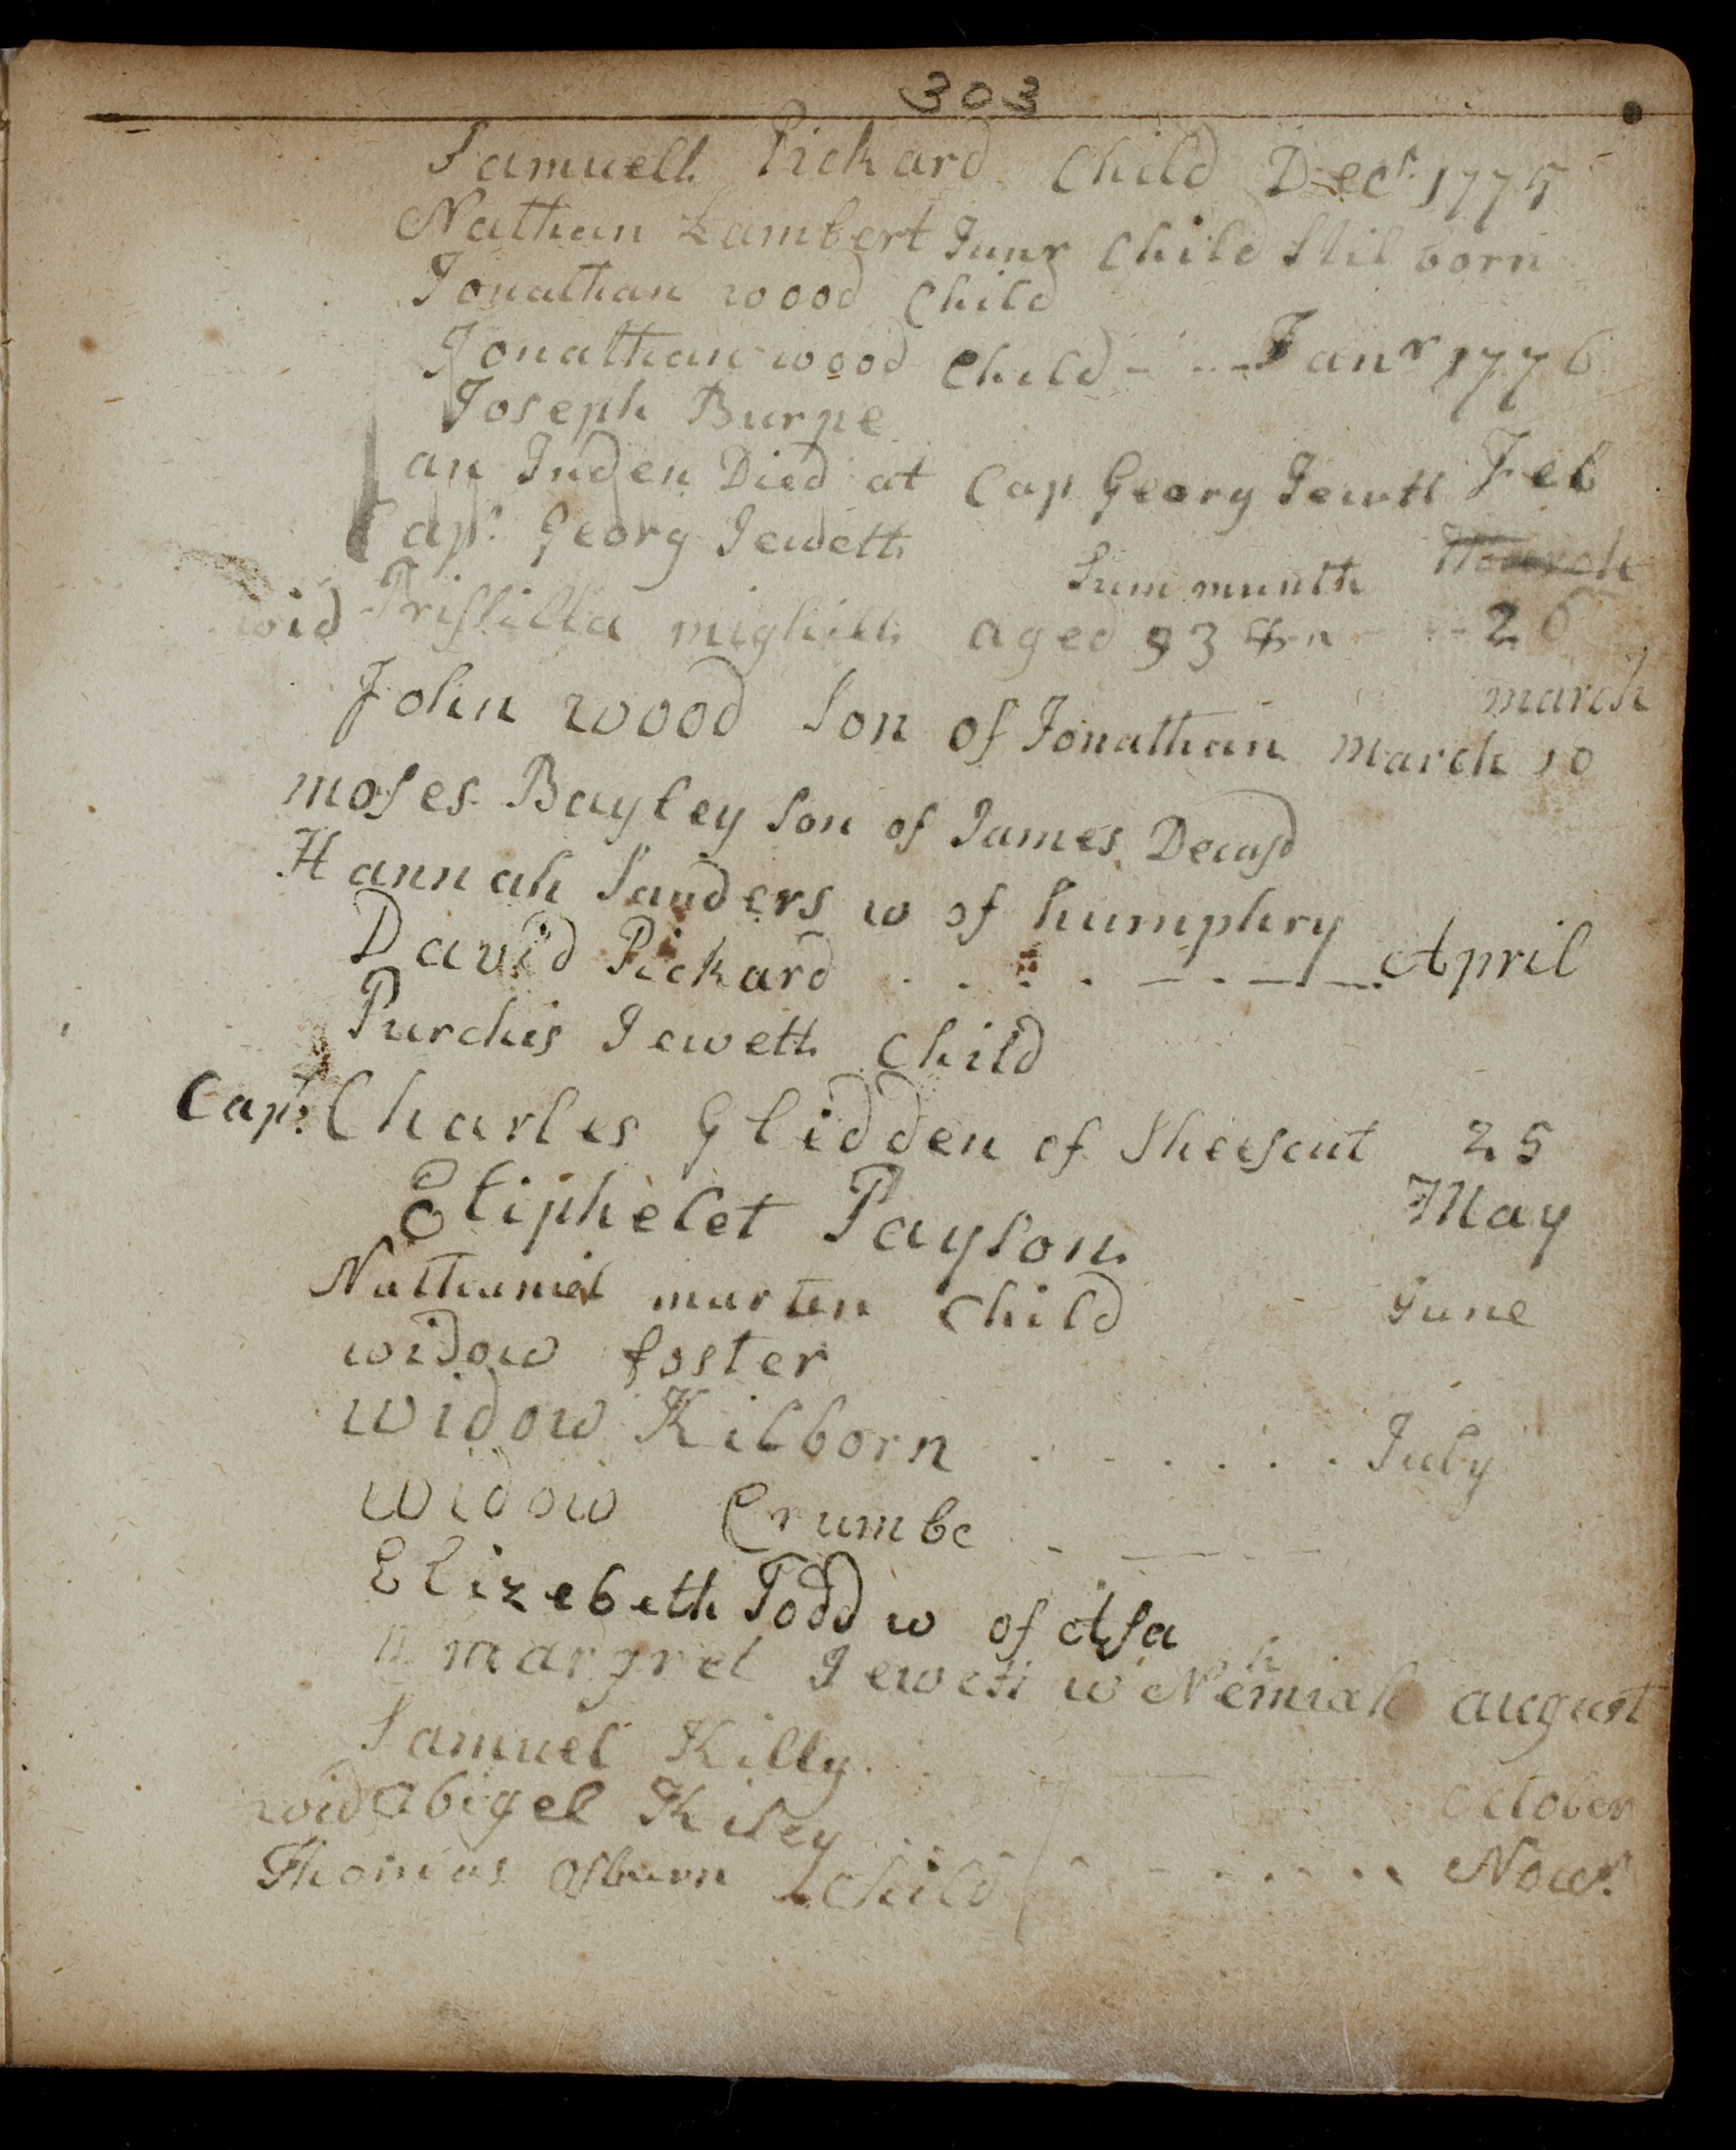 303
Samuell Pickard Child Decr 1775
Nathan Lambert Junr Child Stil born
Jonathan wood Child
Jonathan wood Child - - - Janr 1776
Joseph Burpe
an Inden Died at Cap Georg Jewett Feb
Capt Georg Jewett
Sum munth March
wid Prissilla mighill aged 93 - - 26
march
John wood Son of Jonathan march 10
moses Bayley Son of James Decasd
Hannah Sanders w of humphry
David Pickard . . . . - . - . - . April
Purchis Jewett Child
Capt Charles Glidden of Sheescut 25
Eliphelet Payson May
Nathaniel marten Child June
widow foster
widow Kilborn . . . . . . July
widow Crumbe . - - -
Elizebeth Todd w of Asa
margret Jewett w Nehmiah august
Samuel Killy
wid Abigel Kiley October
Thomas Osburn child - - . . . . Novr